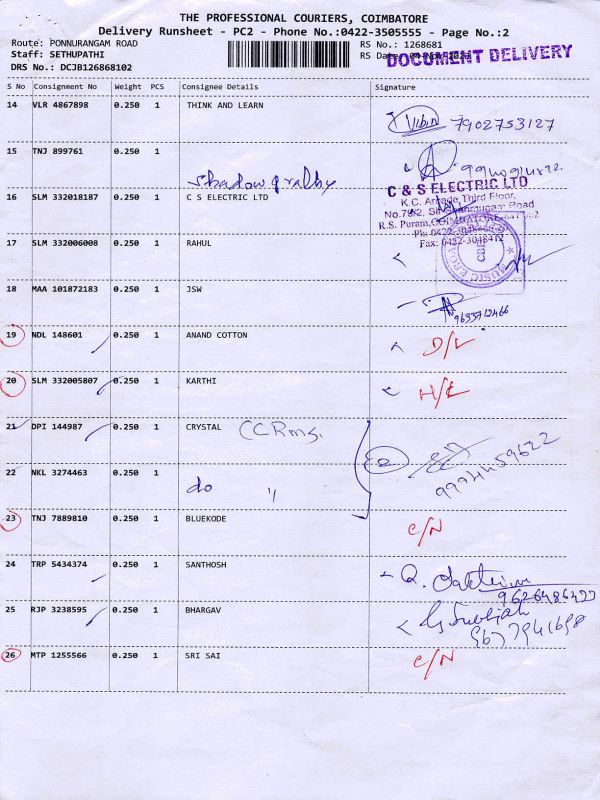 THE PROFESSIONAL COURIERS, COIMBATORE
Delivery Runsheet - PC2 - Phone No.:0422-3505555 - Page No.:2
Route: PONNURANGAM ROAD
RS No.: 1268681
Staff: SETHUPATHI
RS Date
DOCUMENT DELIVERY
DRS No.: DCJB126868102
S No Consignment No Weight PCS Consignee Details Signature
14 VLR 4867898 0.250 1 THINK AND LEARN
Vibin 7902753127
15 TNJ 899761 0.250 1
C & S ELECTRIC LTD
16 SLM 332018187 0.250 1 C S ELECTRIC LTD
K.C. Arcade, Third Floor,
R.S. Puram,
17 SLM 332006008 0.250 1 RAHUL
18 MAA 101872183 0.250 1 JSW
19 NDL 148601 0.250 1 ANAND COTTON D/L
20 SLM 332005807 0.250 1 KARTHI
21 DPI 144987 0.250 1 CRYSTAL
22 NKL 3274463 0.250 1 do 〃
23 TNJ 7889810 0.250 1 BLUEKODE C/N
24 TRP 5434374 0.250 1 SANTHOSH
25 RJP 3238595 0.250 1 BHARGAV
26 MTP 1255566 0.250 1 SRI SAI C/N